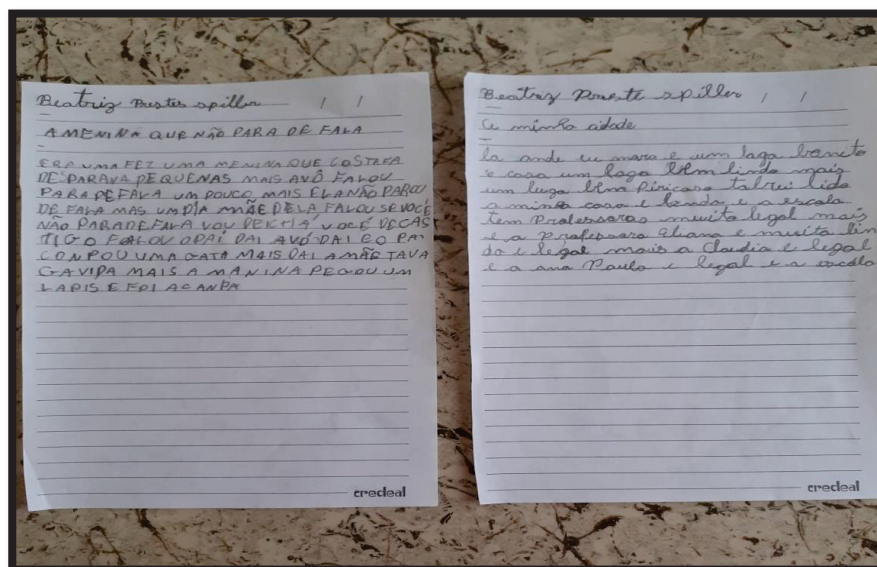 Beatriz Prestes spiller / /
A MENINA QUE NÃO PARA DE FALA
ERA UMA FEZ UMA MENINA QUE COSTAFA
DE PARAVA PEQUENAS MAIS AVÔ FALOU
PARA PE FALA UM POUCO MAIS ELA NÃO PAROU
DE FALA MAS UM DÍA MÃE DELA FALOU SE VOCÊ
NÃO PARA DE FALA VOU VOCÊ DE CAS
TIGO FALOU O PAÍ DAI AVÓ DAI EO PA
CONPOU UMA GATA MAIS DAI A MÃE TAVA
GAVIPA MAIS A MANINA PEGOU UM
LAPIS E FOI ACANPA
credeal
Beatriz spiller / /
minha cidade
la onde eu moro e um laga bonito
e casa um laga bem lindo mais
um luga bem
a minha casa e linda e a escola
tem Professoras muito legal mais
e a Professora e muito lin
da e legal mais a Claudia e legal
e a ana Paula e legal e a escola
credeal